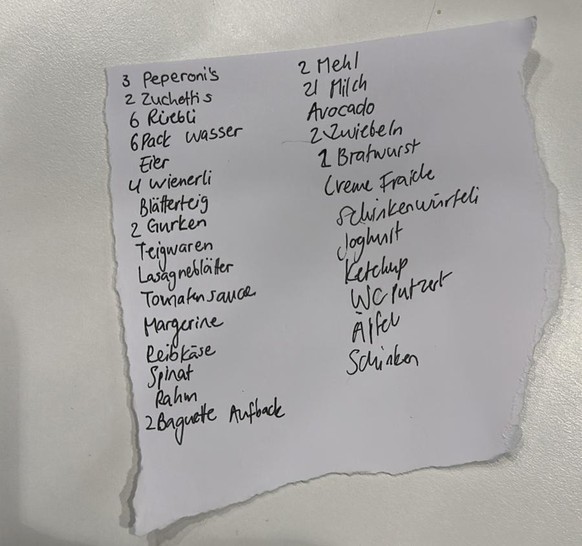 3 Peperoni's
2 Zuchetti's
6 Rüebli
6 Pack Wasser
Eier
4 Wienerli
Blätterteig
2 Gurken
Teigwaren
Lasagneblätter
Tomatensauce
Margerine
Reibkäse
Spinat
Rahm
2 Baguette Aufback
2 Mehl
2l Milch
Avocado
2 Zwiebeln
1 Bratwurst
Creme Fraiche
Schinkenwürfeli
Joghurt
Ketchup
WC Putzert
Äpfel
Schinken